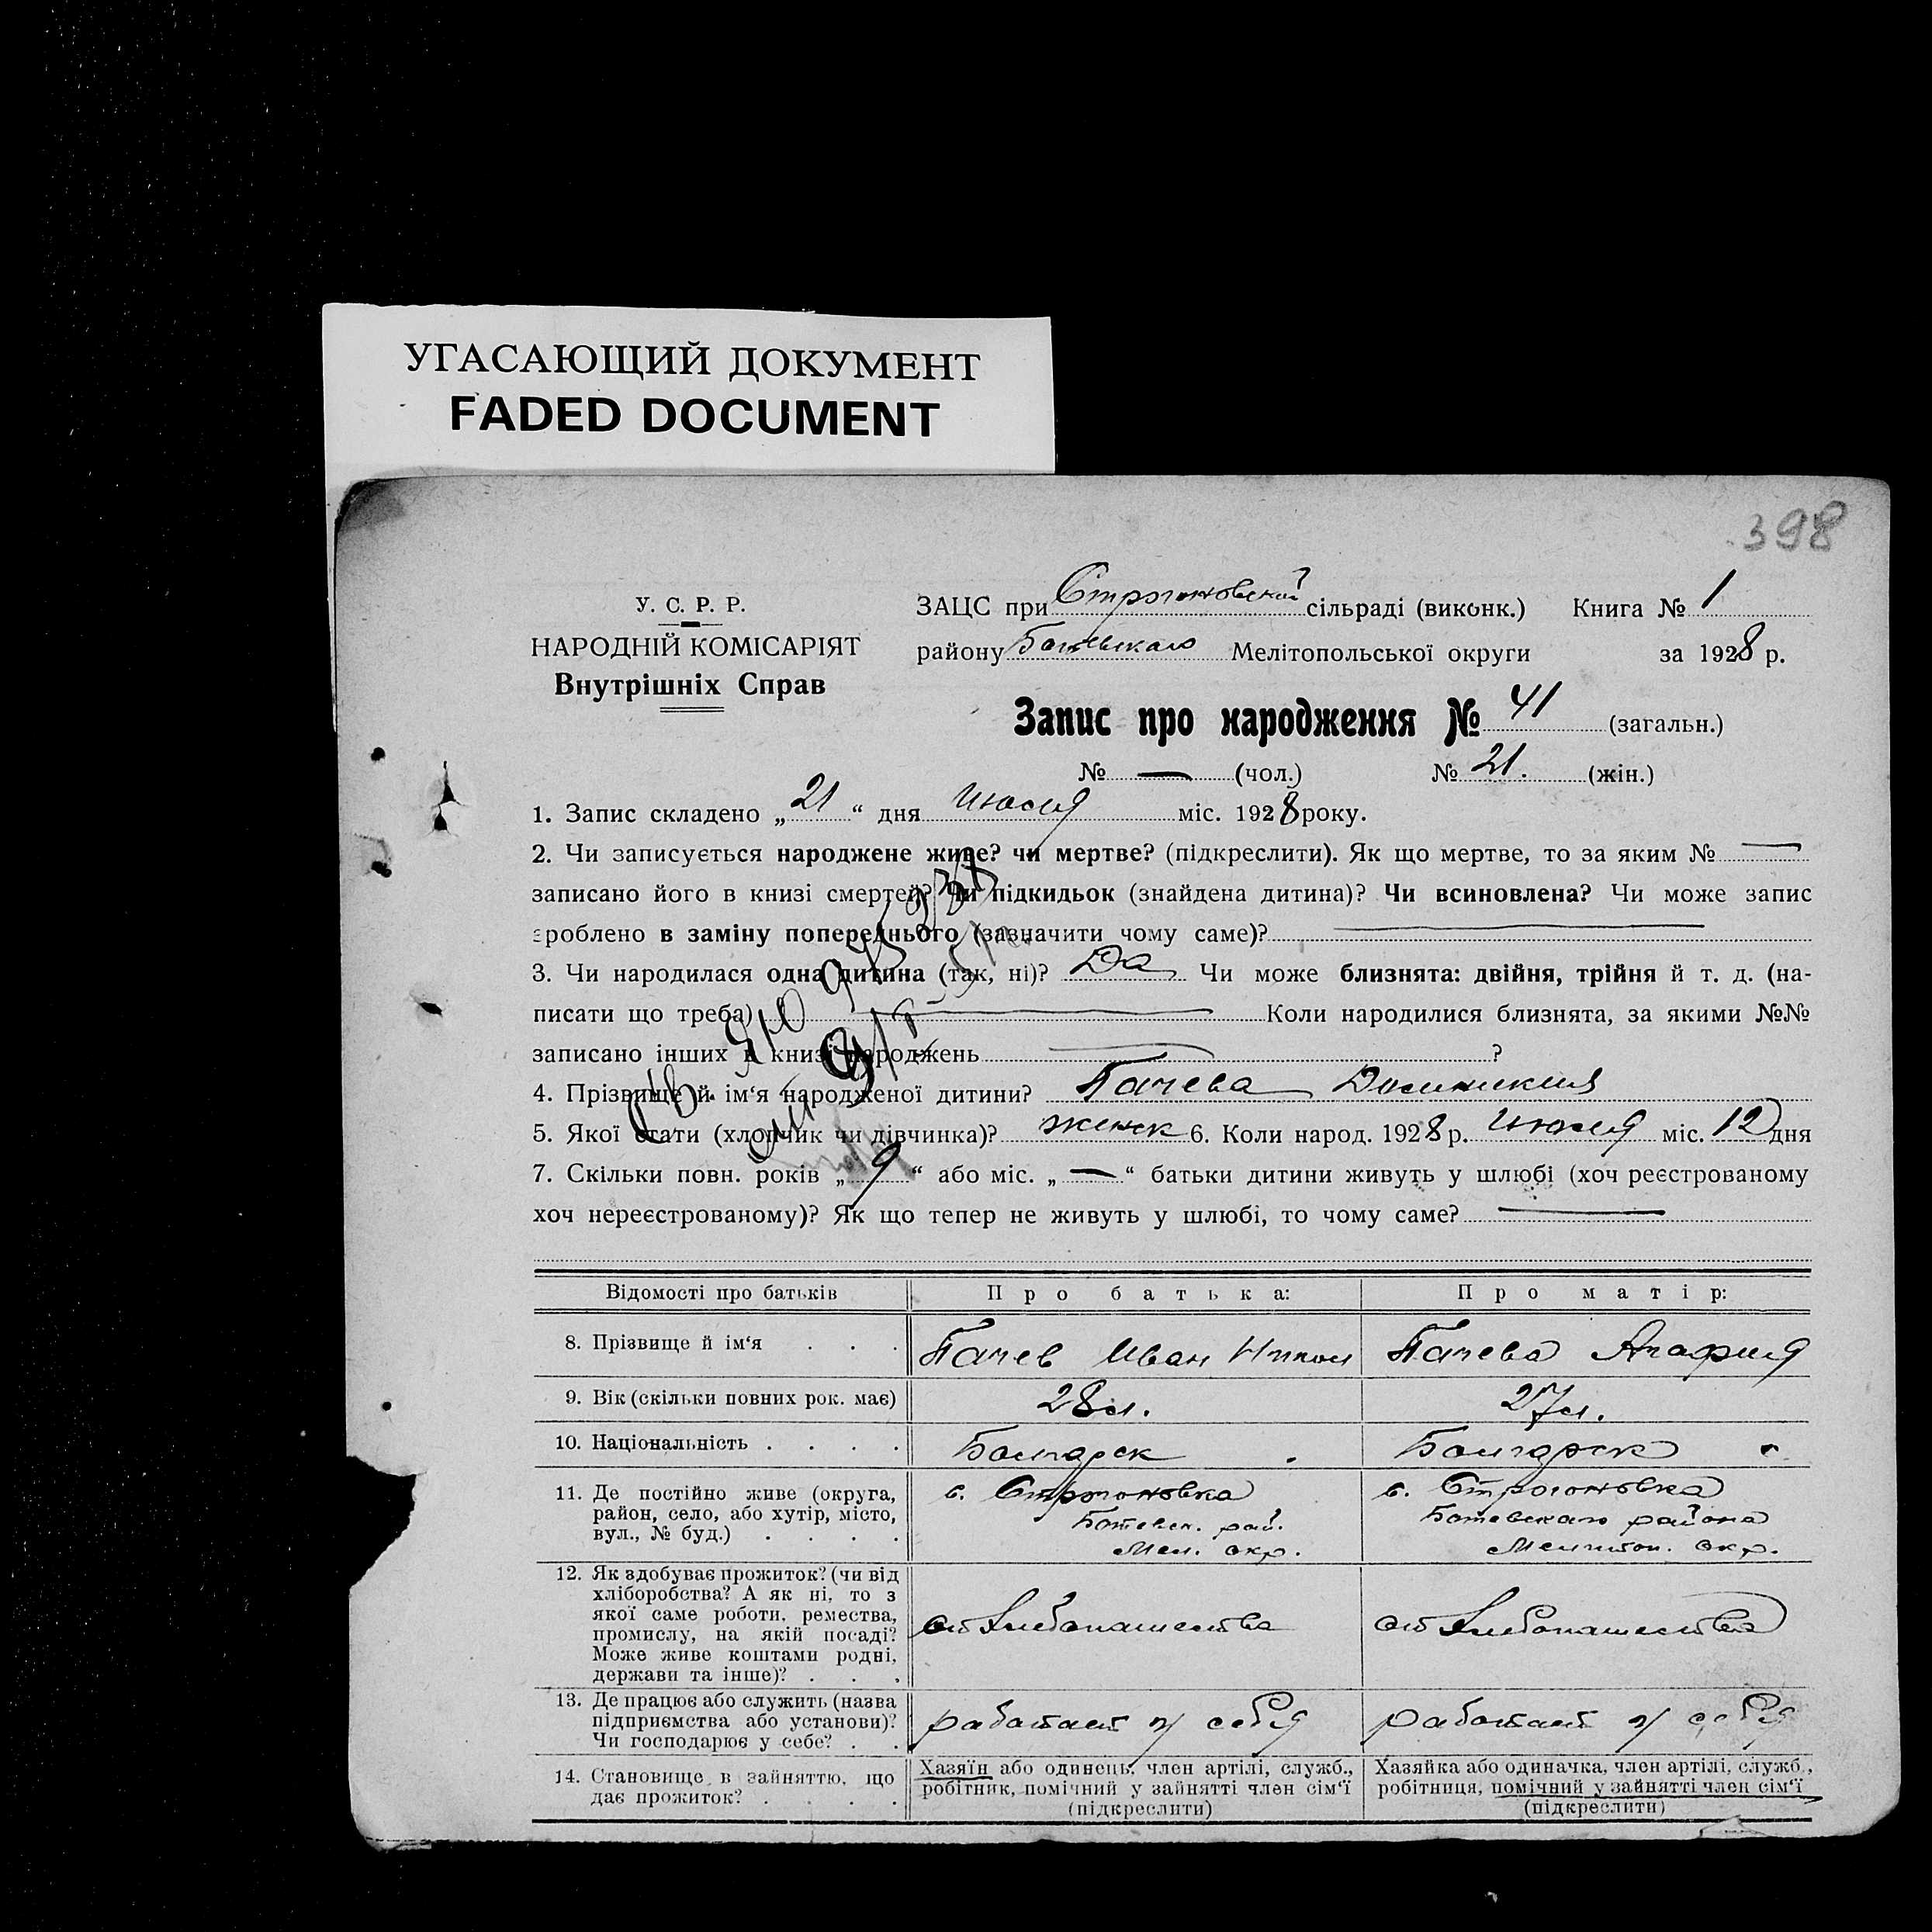 УГАСАЮЩИЙ ДОКУМЕНТ
FADED DOCUMENT
398
У. С. Р. Р.
НАРОДНІЙ КОМІСАРІЯТ
Внутрішніх Справ
ЗАЦС при Строгоновской сільраді (виконк.) Книга № 1
району Ботевского Мелітопольської округи за 1928 р.
Запис про народження № 41 (загальн.)
№ — (чол.) № 21. (жін.)
1. Запис складено „ 21 “ дня Июля міс. 1928 року.
2. Чи записується народжене живе? чи мертве? (підкреслити). Як що мертве, то за яким № —
записано його в книзі смертей? Чи підкидьок (знайдена дитина)? Чи всиновлена? Чи може запис
зроблено в заміну попереднього (зазначити чому саме)? —
3. Чи народилася одна дитина (так, ні)? Да Чи може близнята: двійня, трійня й т. д. (на-
писати що треба) — Коли народилися близнята, за якими №№
записано інших в книзі народжень — ?
4. Прізвище й ім‘я народженої дитини? Пачева
5. Якої стати (хлопчик чи дівчинка)? женск 6. Коли народ. 1928 р. Июля міс. 12 дня
7. Скільки повн. років „ 9 “ або міс. „ — “ батьки дитини живуть у шлюбі (хоч реєстрованому
хоч нереєстрованому)? Як що тепер не живуть у шлюбі, то чому саме? —
Відомості про батьків
Про батька:
Про матір:
8. Прізвище й ім‘я . . .
Пачев Иван Никол
Пачева Агафия
9. Вік (скільки повних рок. має)
28 л.
27 л.
10. Національність . . . .
Болгарск
Болгарск
11. Де постійно живе (округа,
район, село, або хутір, місто,
вул., № буд.) . . . .
с. Строгоновка
Ботевск. рай.
Мел. окр.
с. Строгоновка
Ботевского района
Мелитоп. окр.
12. Як здобуває прожиток? (чи від
хліборобства? А як ні, то з
якої саме роботи, ремества,
промислу, на якій посаді?
Може живе коштами родні,
держави та інше)? . . .
от хлебопашества
от хлебопашества
13. Де працює або служить (назва
підприємства або установи)?
Чи господарює у себе? . .
работает у себя
работает у себя
14. Становище в зайняттю, що
дає прожиток? . . . .
Хазяїн або одинець, член артілі, служб.,
робітник, помічний у зайнятті член сім‘ї
(підкреслити)
Хазяйка або одиначка, член артілі, служб.,
робітниця, помічний у зайнятті член сім‘ї
(підкреслити)